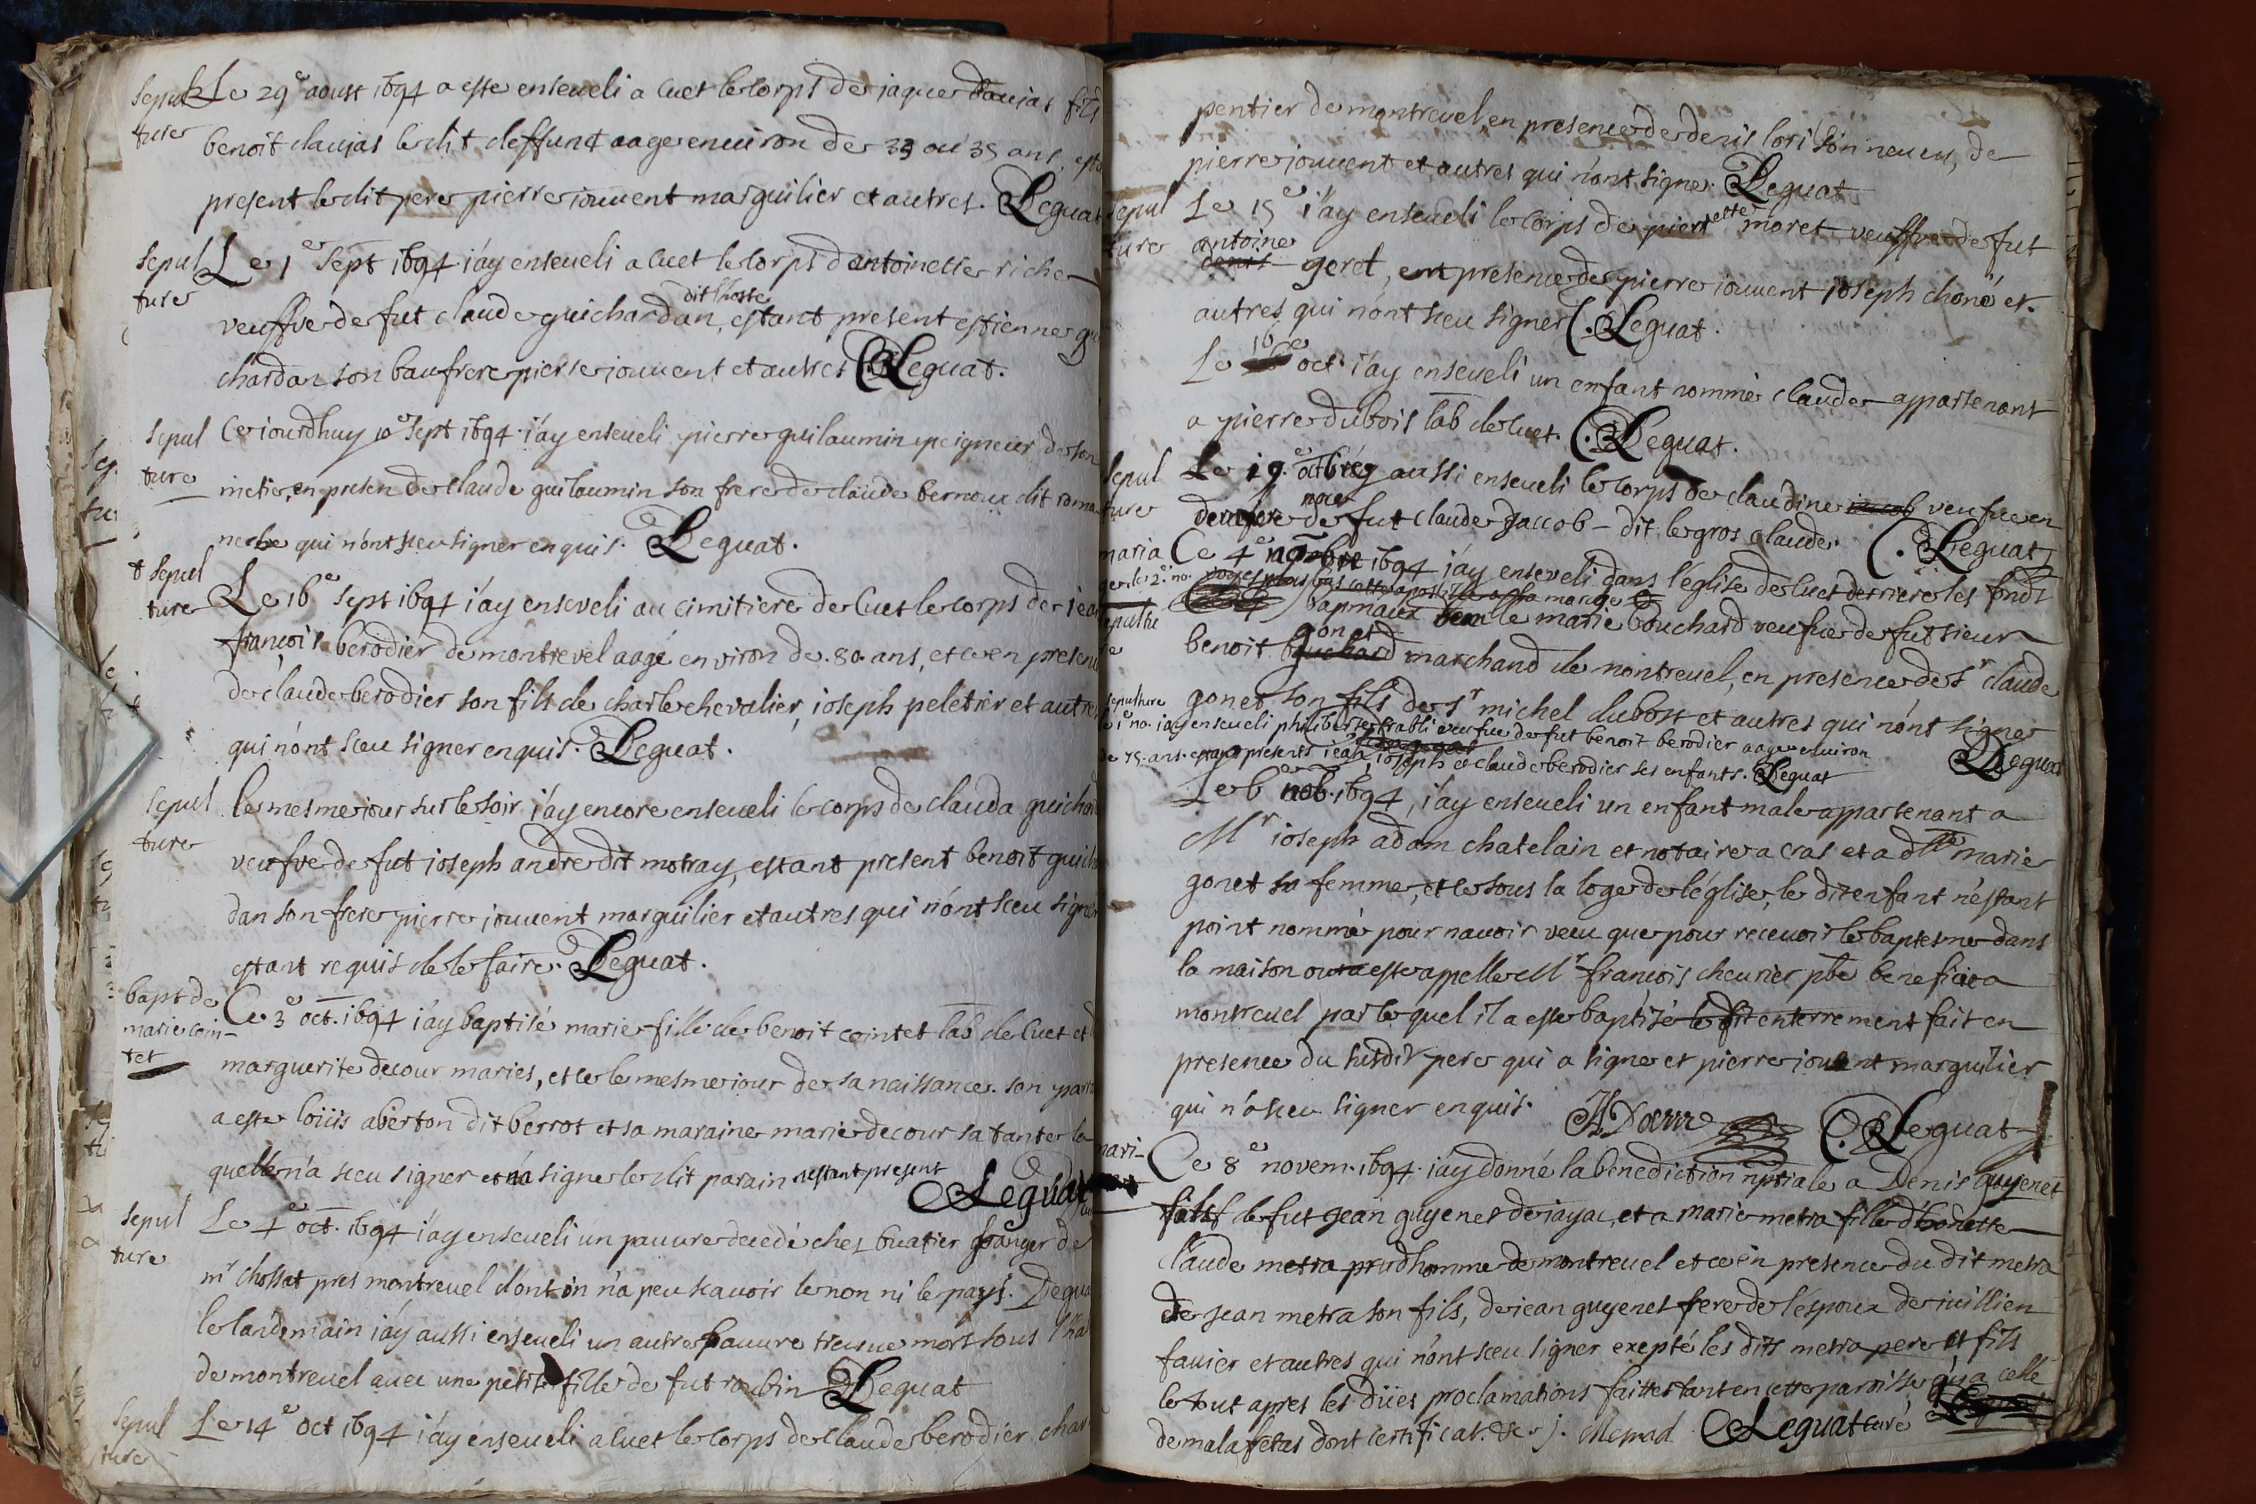 sepul Le 29e aoust 1694 a este enseueli a Cuet le corps de jaque daujat fils
ture benoit daujat le dit deffunt aage enuiron de 33 ou 35 ans, est
present le dit pere pierre jouuent marguilier et autres. Leguat
sepul Le 1er sept 1694 i'ay enseueli a Cuet le corps d'antoinette riche
ture veuffve de fut claude guichardan dit l'hoste, estant present estienne gui
chardan son baufrere pierre jouuent et autres Leguat.
sepul Ce iourdhuy 10e sept 1694 i'ay enseueli pierre guilaumin peigneur de son
ture metier, en presen de claude guilaumin son frere de claude bernoux dit roma
neche qui n'ont sceu signer enquis. Leguat.
sepul Le 16e sept 1694 i'ay enseveli au cimitiere de Cuet le corps de iean
ture françois berodier de montrevel aagé environ de 80 ans, et ce en presen
de claude berodier son fils de charle chevalier, ioseph peletier et autres
qui n'ont sceu signer enquis. Leguat.
sepul le mesme iour sur le soir i'ay encore enseueli le corps de clauda guichar
ture veufve de fut joseph andre dit motray, estant present benoit guichar
dan son frere pierre jouuent marguilier et autres qui n'ont sceu signer
estant requis de le faire. Leguat.
bapt de Ce 3e oct. 1694 i'ay baptisé marie fille de benoit cointet lab de Cuet et
marie coin- marguerite decour maries, et ce le mesme iour de sa naissance. son parr
tet a este loüis aberton dit berrot et sa maraine marie decour sa tante la
quelle n'a sceu signer et n'a signe le dit parain n'estant present
Leguat
sepul Le 4e oct. 1694 i'ay enseueli un pauure decedé ches buatier granger de
ture mr chossat pres montreuel dont on n'a peu scauoir le non ni le pays. Leguat
le landemain i'ay aussi enseueli un autre pauure treuue mort sous l'ha
de montreuel auec une petite fille de fut roubin Leguat
sepul Le 14e oct 1694 i'ay enseueli a Cuet le corps de claude berodier char
ture
pentier de montreuel, en presence de denis lori son neueu, de
pierre jouuent et autres qui n'ont signe. Leguat
sepul Le 15e i'ay enseueli le corps de pierrette moret veuffve de fut
ture antoine geret, en presence de pierre jouuent joseph choné et
autres qui n'ont sceu signer. Leguat.
Le 16e oct. i'ay enseueli un enfant nommé claude appartenant
a pierre dubois lab de Cuet. Leguat.
sepul Le 19e octbre i'ay aussi enseueli le corps de claudine veufue en
ture de fut claude Jaccob dit le gros claude. Leguat
maria Ce 4e nobre 1694 i'ay enseveli dans l'église de Cuet derriere les fonds
ge le 2e no.
sepultu baptismaux marie bouchard veufue de fut sieur
re benoit gonet marchand de montreuel, en presence de sr claude
gonet son fils de sr michel dubost et autres qui n'ont signe
Leguat
sepulture
le 1er no. i'ay enseueli philiberte veufue de fut benoit berodier aage enuiron
de 75. ans. presents iean, joseph et claude berodier ses enfants. Leguat
Le 6e nob. 1694, i'ay enseueli un enfant male appartenant a
Mr ioseph adam chatelain et notaire a cras et a dlle marie
gonet sa femme, et ce sous la loge de l'église, le dit enfant n'estant
point nommé pour n'auoir vecu que pour receuoir le baptesme dans
la maison ou a este appelle Mr francois cheurier pbre beneficie a
montreuel par le quel il a este baptisé le dit enterrement fait en
presence du susdit pere qui a signe et pierre jouuent marguilier
qui n'a sceu signer enquis. Adam Leguat
mari- Ce 8e novem. 1694. i'ay donné la benediction nuptiale a Denis guyenet
fils de fut jean guyenet de jayac, et a marie metra fille d'honeste
claude metra prudhomme de montreuel et ce en presence du dit metra
de jean metra son fils, de jean guyenet frere de l'espoux de iuillien
fauier et autres qui n'ont sceu signer exepté les dits metra pere et fils
le tout apres les düies proclamations faittes tant en cette paroisse qu'a celle
de malafretas dont certificat. &c. J. Metrad Leguat curé